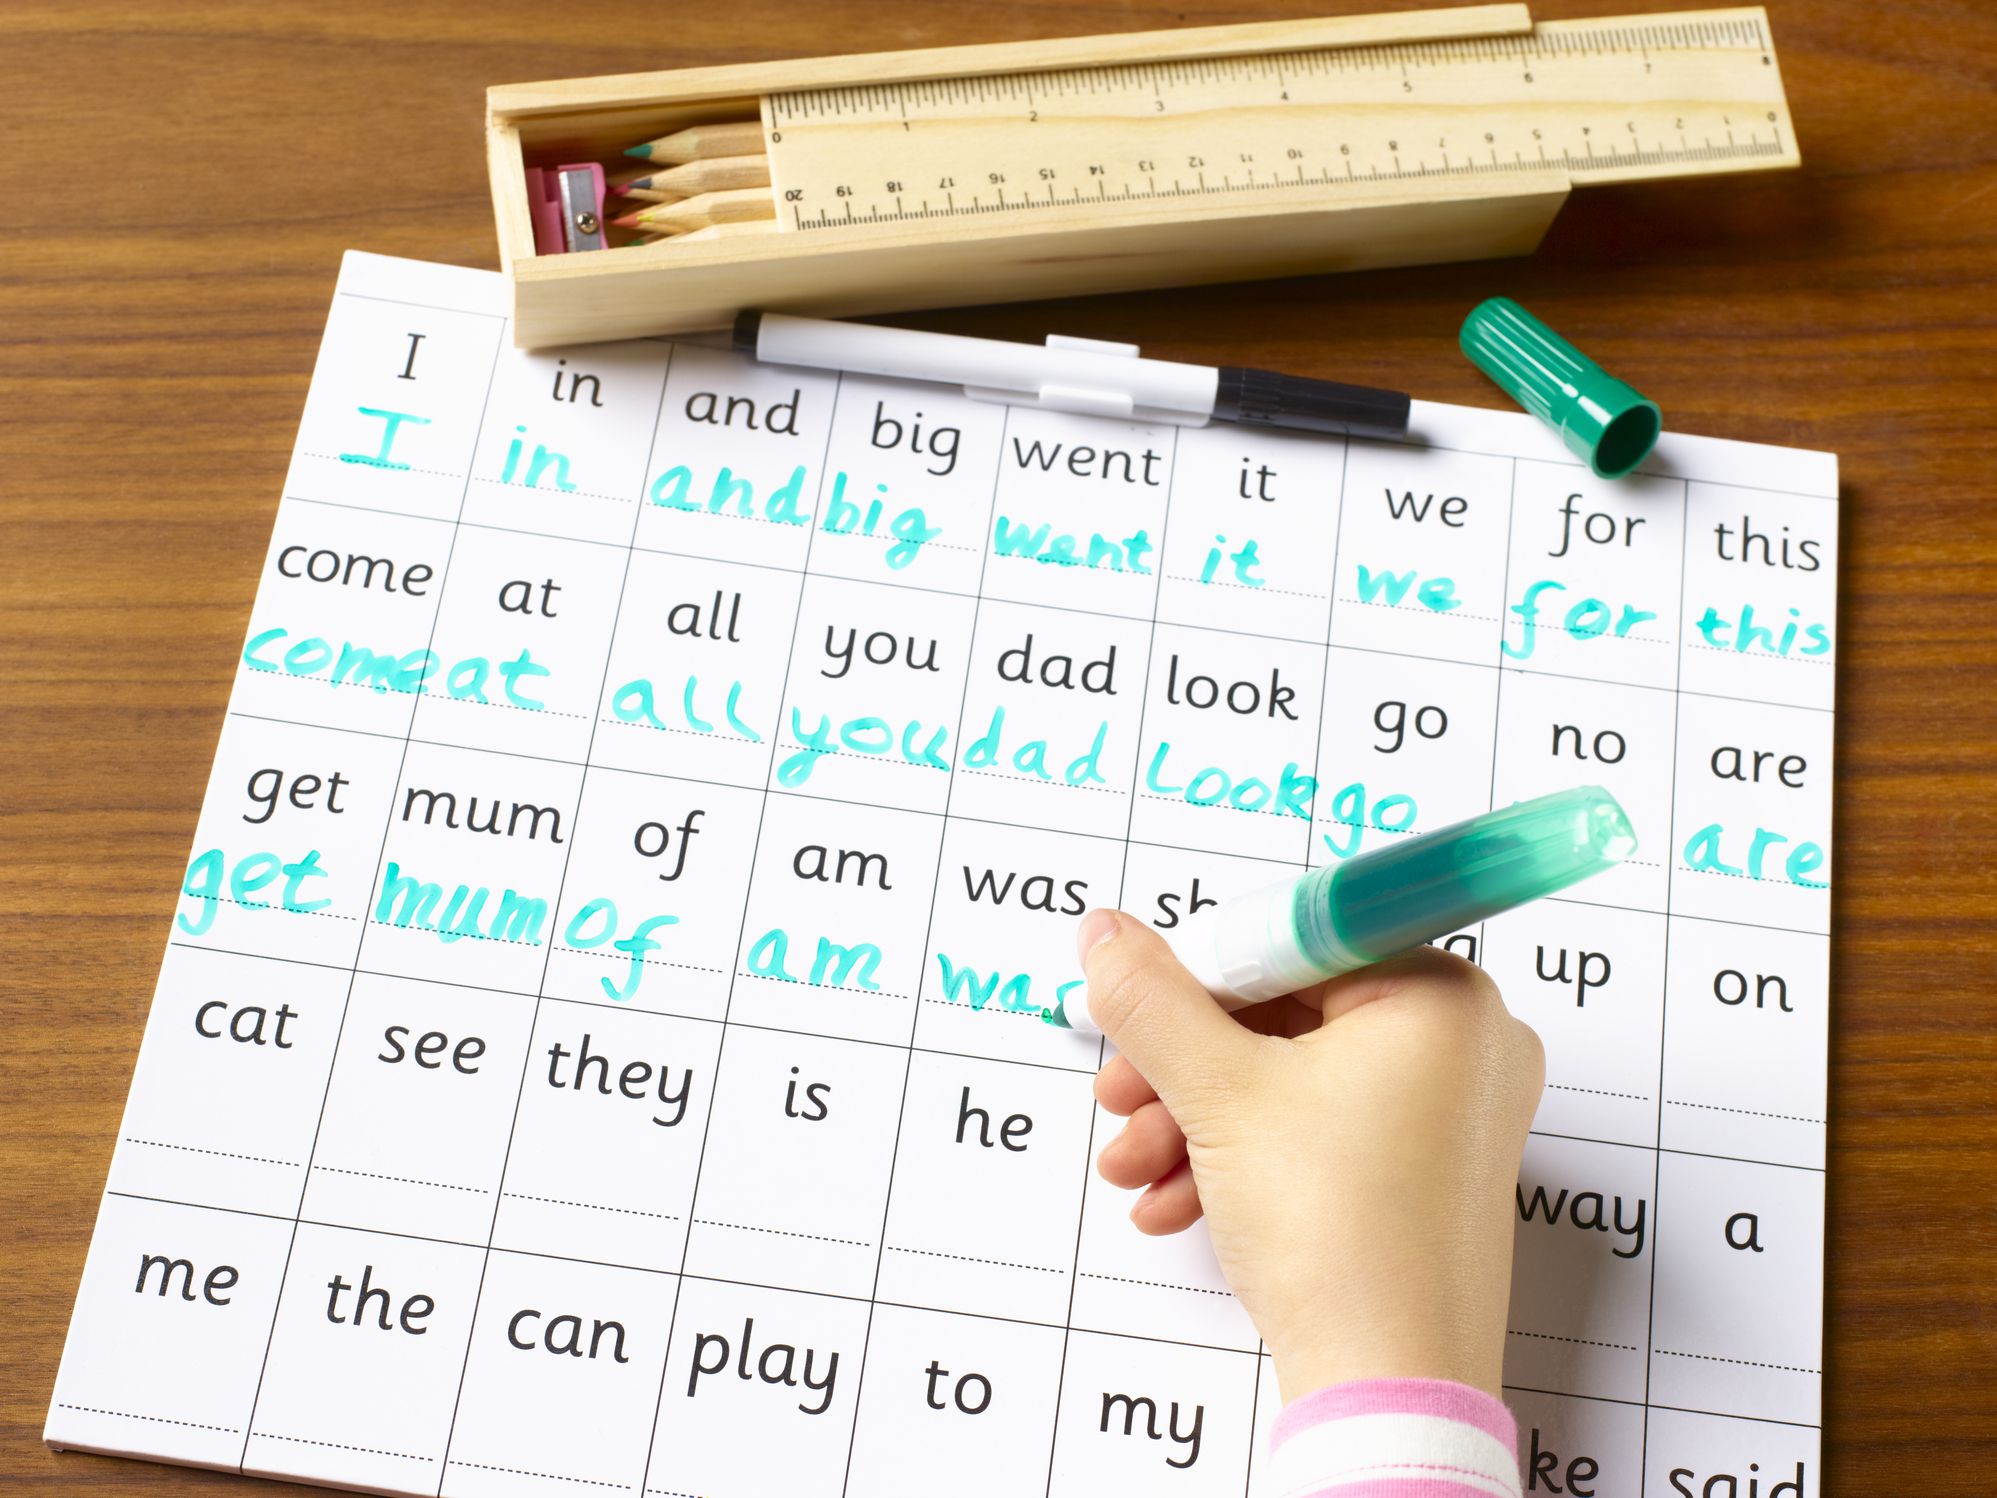 0 1 2 3 4 5 6 7 8
20 19 18 17 16 15 14 13 12 11 10 9 8 7 6 5 4 3 2 1 0
I in and big went it we for this
I in and big went it we for this
come at all you dad look go no are
come at all you dad look go are
get mum of am was up on
get mum of am was
cat see they is he way a
me the can play to my said